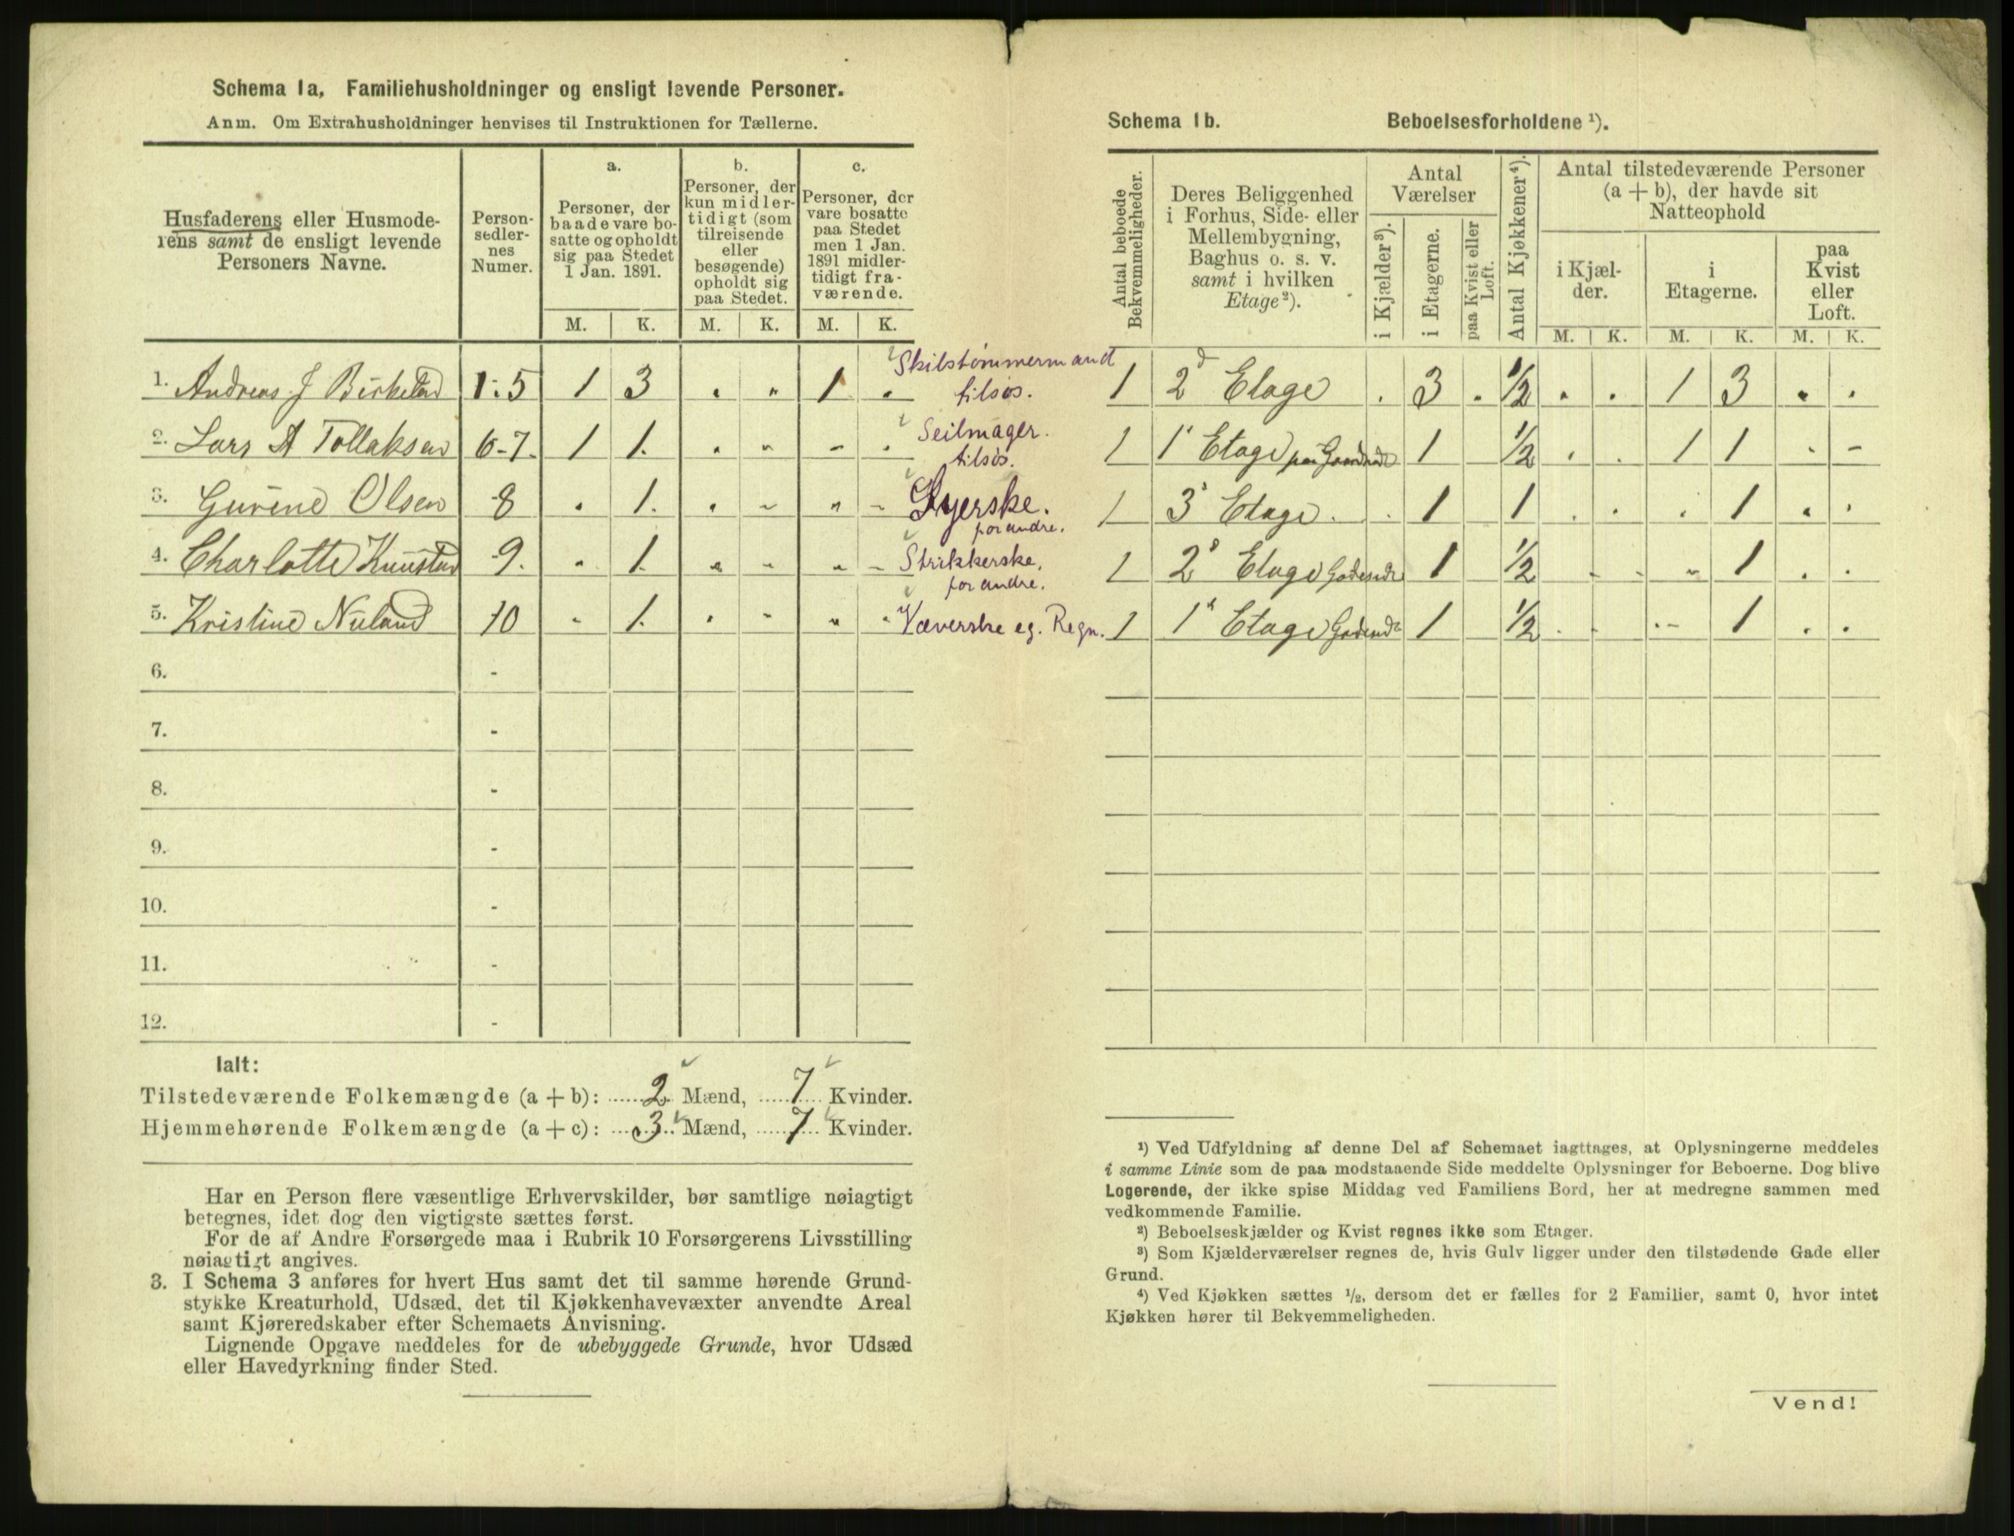 Schema 1a. Familiehusholdninger og ensligt levende Personer.
Anm. Om Extrahusholdninger henvises til Instruktionen for Tællerne.
Husfaderens eller Husmoderens samt de ensligt levende Personers Navne.
Personsedlernes Numer.
a.
Personer, der baade vare bosatte og opholdt sig paa Stedet 1 Jan. 1891.
b.
Personer, der kun midlertidigt (som tilreisende eller besøgende) opholdt sig paa Stedet.
c.
Personer, der vare bosatte paa Stedet men 1 Jan. 1891 midlertidigt fraværende.
M. K. M. K. M. K.
1. Andreas J Birkeland 1-5 1 3 . „ 1 . Skibstømmermand tilsøs.
2. Lars A Tollaksen 6-7. 1 1. . „ – . Seilmager. tilsøs.
3. Gurine Olsen 8 . 1. . – „ – Syerske. for andre.
4. Charlotte 9. „ 1. „ „ „ – Strikkerske, for andre.
5. Kristine Nuland 10 „ 1. . „ „ . Væverske eg. Regn.
6. -
7. -
8. -
9. -
10. -
11. -
12. -
Ialt:
Tilstedeværende Folkemængde (a + b): 2 Mænd, 7 Kvinder.
Hjemmehørende Folkemængde (a + c): 3 Mænd, 7 Kvinder.
Har en Person flere væsentlige Erhvervskilder, bør samtlige nøiagtigt
betegnes, idet dog den vigtigste sættes først.
For de af Andre Forsørgede maa i Rubrik 10 Forsørgerens Livsstilling
nøiagtigt angives.
3. I Schema 3 anføres for hvert Hus samt det til samme hørende Grund-
stykke Kreaturhold, Udsæd, det til Kjøkkenhavevæxter anvendte Areal
samt Kjøreredskaber efter Schemaets Anvisning.
Lignende Opgave meddeles for de ubebyggede Grunde, hvor Udsæd
eller Havedyrkning finder Sted.
Schema 1b. Beboelsesforholdene ¹).
Antal beboede Bekvemmeligheder.
Deres Beliggenhed i Forhus, Side- eller Mellembygning, Baghus o. s. v. samt i hvilken Etage²).
Antal Værelser
i Kjælder³).
i Etagerne.
paa Kvist eller Loft.
Antal Kjøkkener⁴).
Antal tilstedeværende Personer (a + b), der havde sit Natteophold
i Kjælder.
i Etagerne.
paa Kvist eller Loft.
M. K. M. K. M. K.
1 2 Etage . 3 . 1/2 . . 1 3 . .
1 1 Etage 1 1/2 . . 1 1 . –
1 3 Etage . . 1 1 . . . 1 . .
1 2 Etage 1 1/2 - - „ 1 . .
1 1 Etage 1 1/2 . . - 1 . .
¹) Ved Udfyldning af denne Del af Schemaet iagttages, at Oplysningerne meddeles
i samme Linie som de paa modstaaende Side meddelte Oplysninger for Beboerne. Dog blive
Logerende, der ikke spise Middag ved Familiens Bord, her at medregne sammen med
vedkommende Familie.
²) Beboelseskjælder og Kvist regnes ikke som Etager.
³) Som Kjælderværelser regnes de, hvis Gulv ligger under den tilstødende Gade eller
Grund.
⁴) Ved Kjøkken sættes ½, dersom det er fælles for 2 Familier, samt 0, hvor intet
Kjøkken hører til Bekvemmeligheden.
Vend!